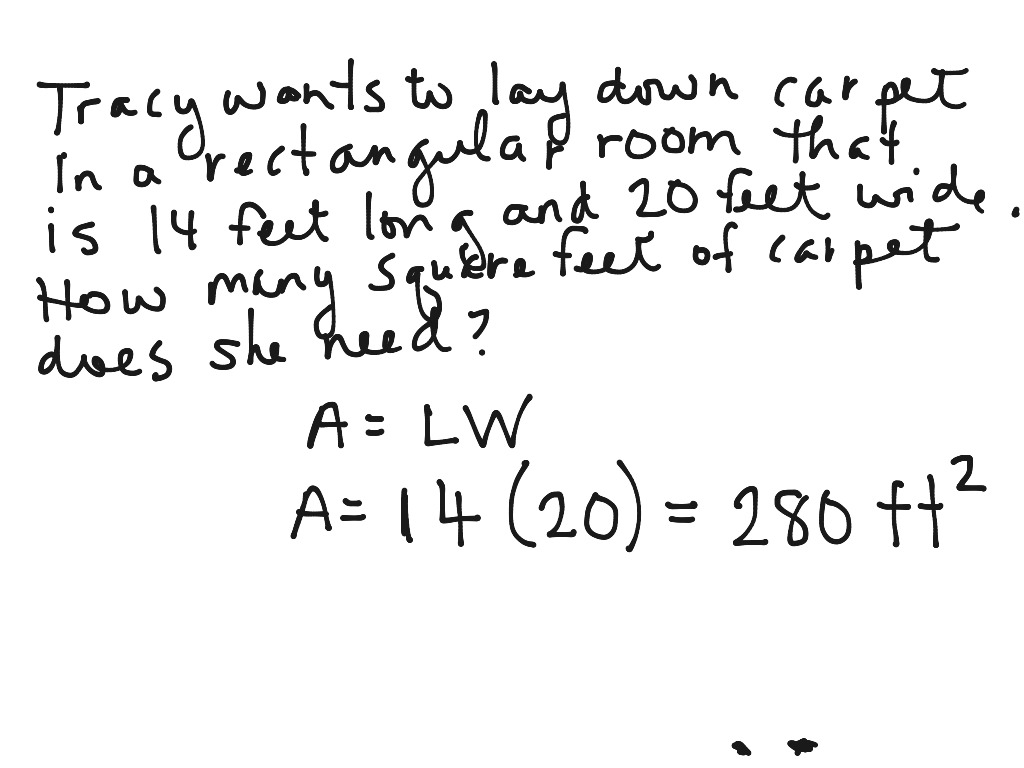 Tracy wants to lay down carpet
in a rectangular room that
is 14 feet long and 20 feet wide.
How many square feet of carpet
does she need?
A = LW
A = 14 (20) = 280 ft²